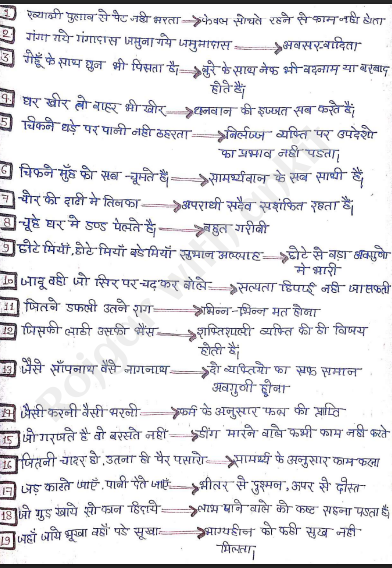 1 ख्याली पुलाव से पेट नहीं भरता → केवल सोचते रहने से काम नहीं होता
2 गंगा गये गंगादास जमुना गये जमुनादास → अवसरवादिता
3 गेहूँ के साथ घुन भी पिसता है। → बुरे के साथ नेक भी बदनाम या बरबाद
होते हैं।
4 घर खीर तो बाहर भी खीर → धनवान की इज्जत सब करते हैं।
5 चिकने घड़े पर पानी नहीं ठहरता → निर्लज्ज व्यक्ति पर उपदेशो
का प्रभाव नहीं पडता।
6 चिकने मुँह को सब चूमते हैं। → सामर्थ्यवान के सब साथी हैं।
7 चोर की दाढी मे तिनका → अपराधी सदैव सशंकित रहता है।
8 चूहे घर मे डण्ड पेलते है। → बहुत गरीबी
9 छोटे मियाँ, छोटे मियाँ बडे मियाँ सुभान अल्लाह → छोटे से बड़ा अवगुणो
मे भारी
10 जादू वही जो सिर पर चढ़ कर बोले → सत्यता छिपाए नहीं जा सकती
11 जितने डफली उतने राग → भिन्न-भिन्न मत होना
12 जिसकी लाठी उसकी भैंस → शक्तिशाली व्यक्ति की ही विजय
होती है।
13 जैसे साँपनाथ वैसे नागनाथ → दो व्यक्तियो का एक समान
अवगुणी होना
14 जैसी करनी वैसी भरनी → कर्म के अनुसार फल की प्राप्ति
15 जो गरजते है वो बरसते नहीं → डींग मारने वाले कभी काम नहीं करते
16 जितनी चादर हो, उतना ही पैर पसारो → सामर्थ्य के अनुसार काम करना
17 जड़ काटते जाएँ, पानी देते जाएँ → भीतर से दुश्मन, ऊपर से दोस्त
18 जो गुड खाये सो कान छिदाये → लाभ पाने वाले को कष्ट सहना पडता है।
19 जहाँ जाये भूखा वहाँ पडे सूखा → भाग्यहीन को कही सुख नही
मिलता।